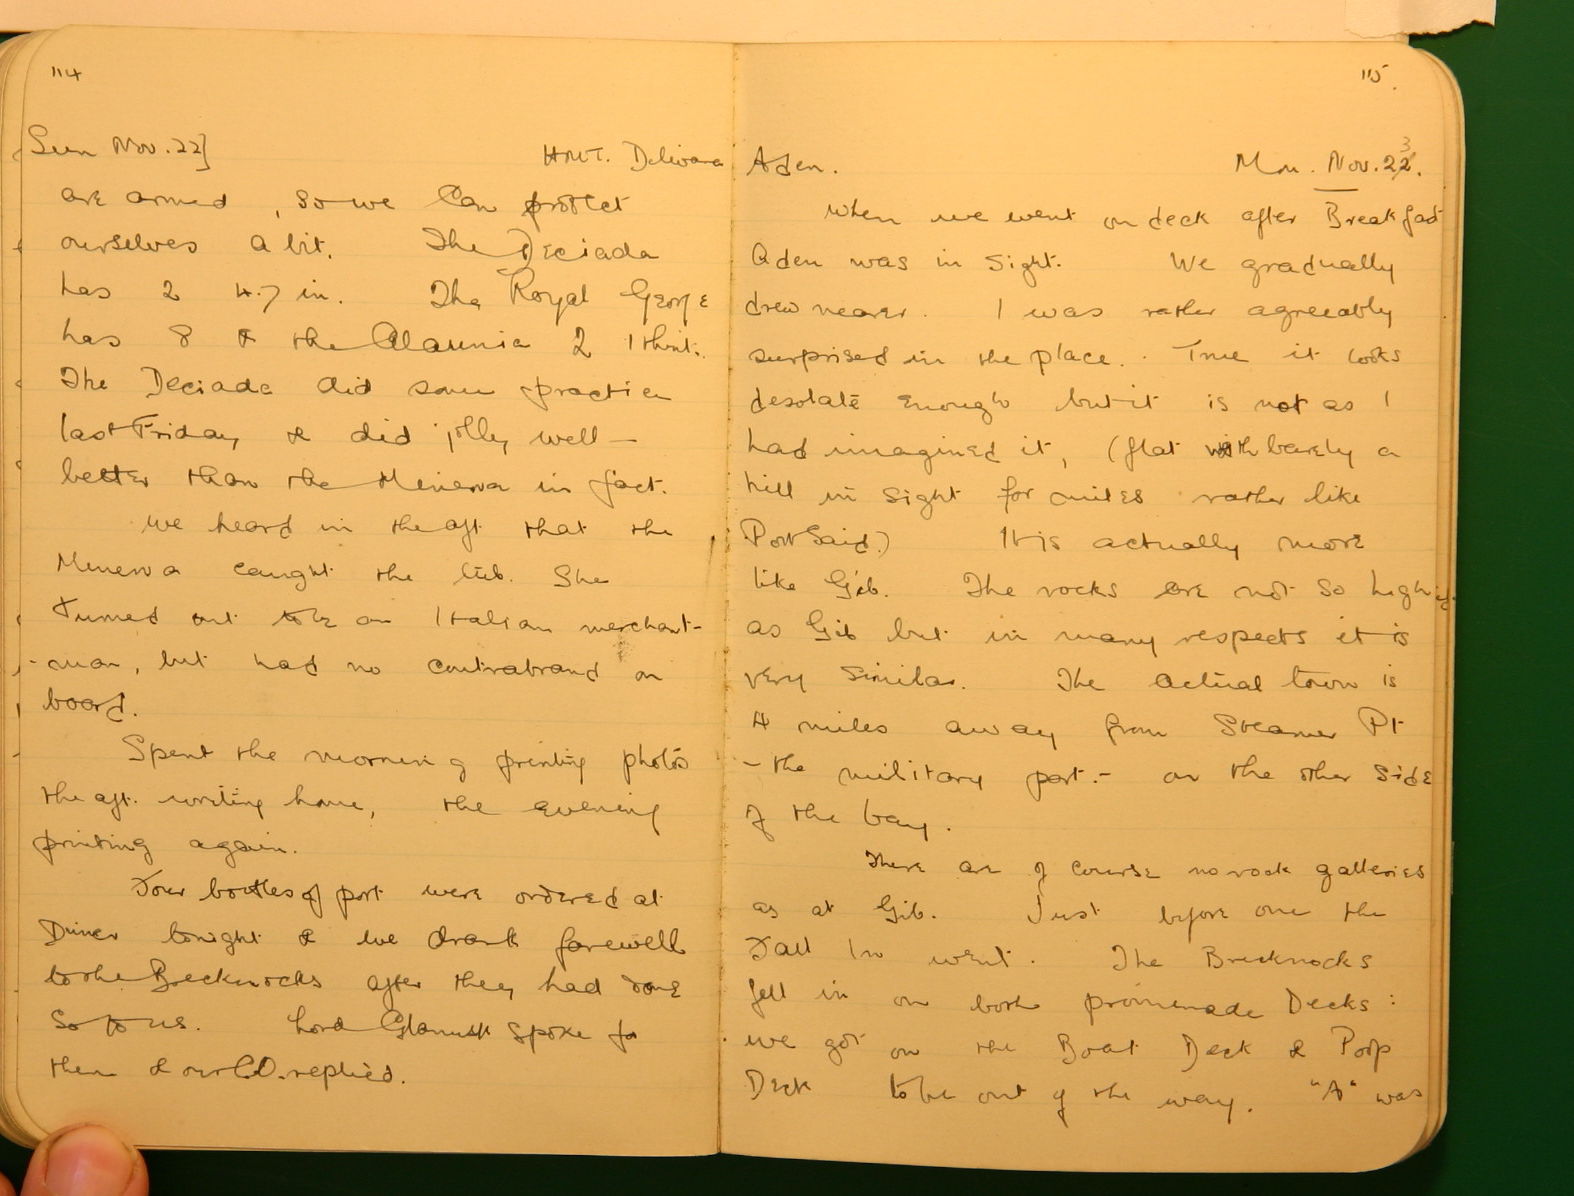 114
Sun Nov. 22] HMT. Deliwara
are armed, so we can protect
ourselves a bit. The Deciada
has 2 4.7 in. The Royal George
has 8 & the Alaunia 2 I think.
The Deciada did some practice
last Friday, & did jolly well —
better than the Minerva in fact.
We heard in the aft that the
Minerva caught the lib. She
turned out to be an Italian merchant-
-man, but had no contraband on
board.
Spent the morning printing photos
the aft. writing home, the evening
printing again.
Four bottles of port were ordered at
Dinner tonight & we drank farewell
to the Brecknocks after they had done
so to us. Lord Glanusk spoke for
them & our C.O. replied.
115.
Aden. Mon. Nov. 23.
When we went on deck after Breakfast
Aden was in sight. We gradually
drew nearer. I was rather agreeably
surprised in the place. True it looks
desolate enough but it is not as I
had imagined it, (flat with barely a
hill in sight for miles rather like
Port Said.) It is actually more
like Gib. The rocks are not so high
as Gib but in many respects it is
very similar. The actual town is
4 miles away from Steamer Pt
- the military port. - on the other side
of the bay.
There are of course no rock galleries
as at Gib. Just before one the
Fall In went. The Brecknocks
fell in on both promenade Decks:
we got on the Boat Deck & Poop
Deck to be out of the way. "A" was